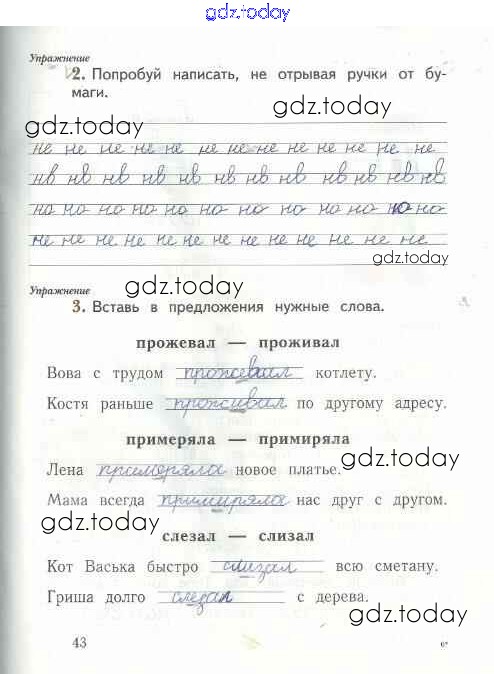 gdz.today
Упражнение
2. Попробуй написать, не отрывая ручки от бу-
маги.
gdz.today
gdz.today
не не не не не не не не не не не не не
нв нв нв нв нв нв нв нв нв нв нв нв
но но но но но но но но но но но но
не не не не не не не не не не не не не
gdz.today
Упражнение
gdz.today
3. Вставь в предложения нужные слова.
прожевал — проживал
Вова с трудом прожевал котлету.
Костя раньше проживал по другому адресу.
примеряла — примиряла
gdz.today
Лена примеряла новое платье.
Мама всегда примиряла нас друг с другом.
gdz.today
слезал — слизал
Кот Васька быстро слизал всю сметану.
Гриша долго слезал с дерева.
gdz.today
43
6*
gdz.today